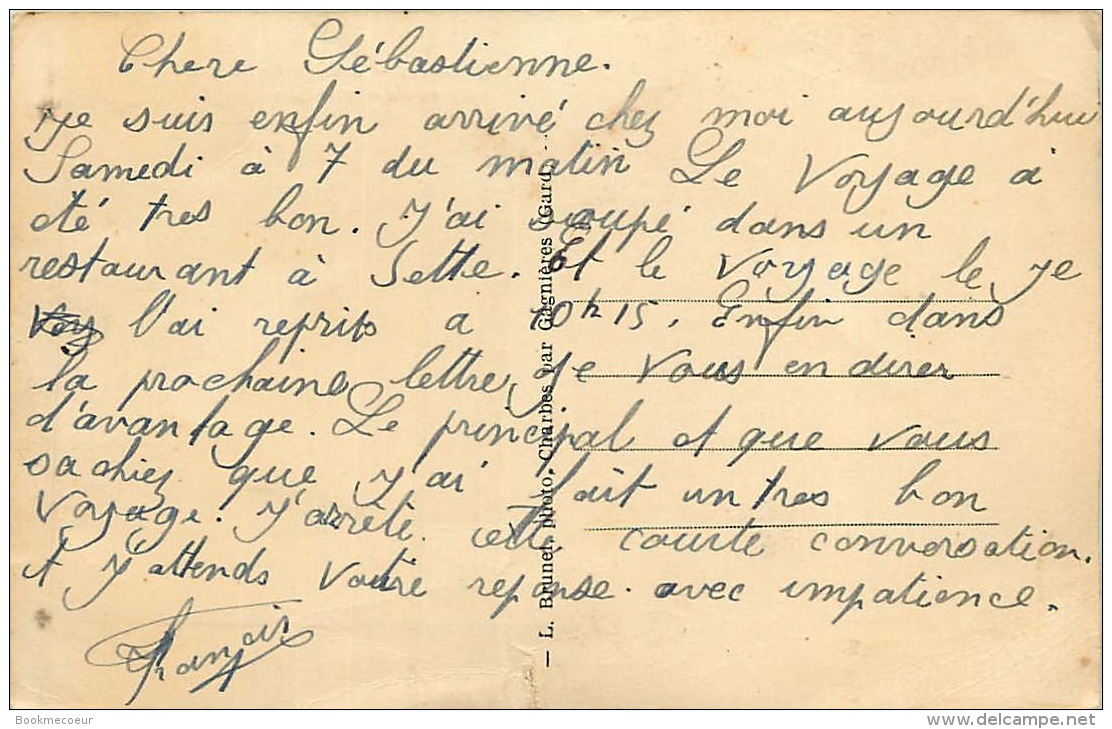 Chere Sébastienne.
Je suis enfin arrivé chez moi aujourd'hui
Samedi à 7 du matin Le Voyage à
été tres bon. J'ai soupé dans un
restaurant à Sette. Et le voyage le je
l'ai reprits a 10h15. Enfin dans
la prochaine lettre, je vous en direz
d'avantage. Le principal et que vous
sachiez que j'ai fait un tres bon
Voyage. J'arrête cette courte conversation.
et J'attends votre reponse. avec impatience.
François
— L. Brunel, photo, Charbes par Gagnières (Gard)
Bookmecoeur
delcampe.net